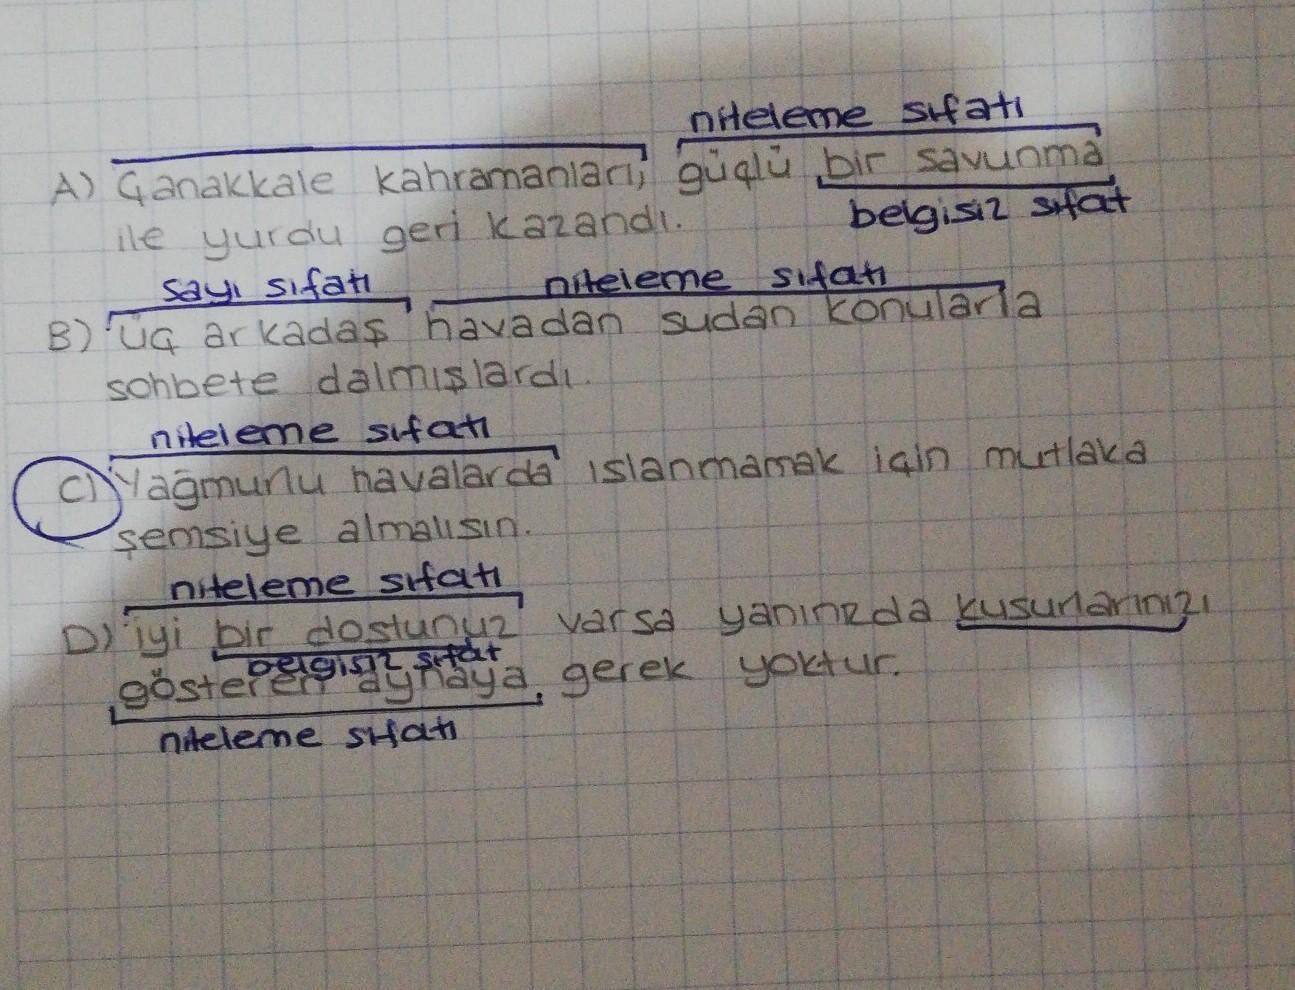 niteleme sıfatı
A) Çanakkale kahramanları, güçlü bir savunma
belgisiz sıfat
ile yurdu geri kazandı.
sayı sıfatı niteleme sıfatı
B) Üç arkadaş havadan sudan konularla
sohbete dalmışlardı.
niteleme sıfatı
C) Yağmurlu havalarda ıslanmamak için mutlaka
şemsiye almalısın.
niteleme sıfatı
D) iyi bir dostunuz varsa yanınızda kusurlarınızı
belgisiz sıfat
gösteren aynaya gerek yoktur.
niteleme sıfatı